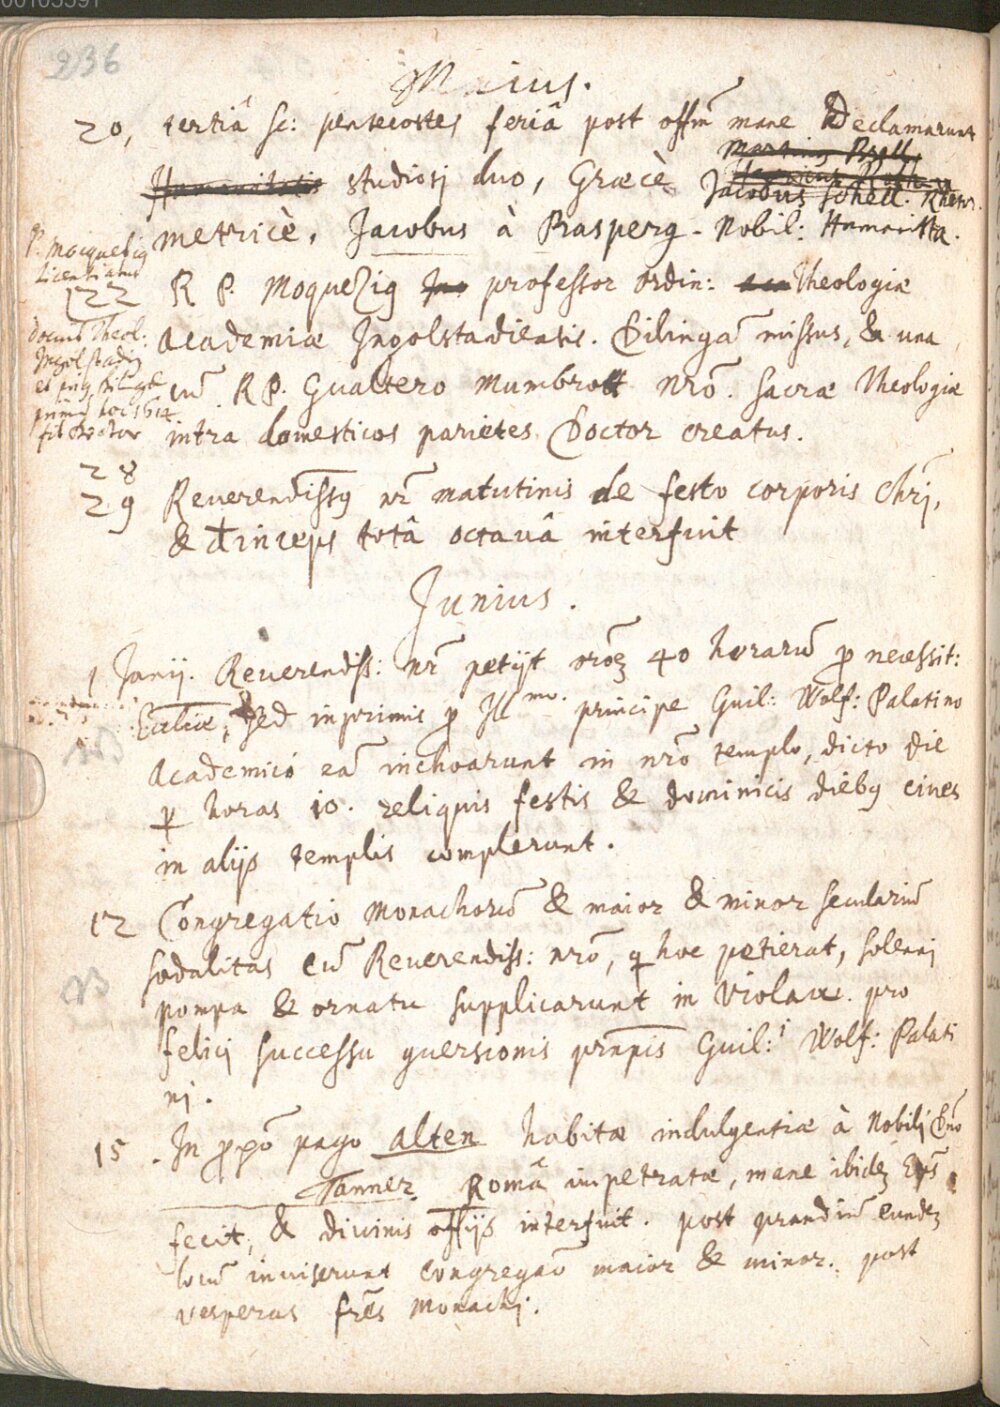 236
Maius.
20, tertiâ sc: pentecostes feriâ post offm̃ mane Declamarunt
Humanitatis studiosj duo, Græcè Jacobus Schell. Rhetor.
metricè, Jacobus à Rasperg. Nobil: Humanista.
P. Mocquetig
Licentiatus
22 R. P. Moquetig professor ordin: Theologiæ
docuit Theol:
Ingolstadij
Academiæ Ingolstadiensis. Dilingã missus, & una
cũ R P. Gualtero Mumbrott nrõ. sacræ Theologiæ
fit doctor
intra domesticos parietes Doctor creatus.
28
29 Reverendissỹ nr̃ matutinis de festo corporis Chri,
& deinceps totâ octavâ interfuit
Junius.
1 Junij. Reverendiss: nr̃ petijt orõem 40 horarũ p necessit:
sed inprimis p Ill mo. principe Guil: Wolf: Palatino
Academici eã inchoarunt in nrõ templo, dicto die
p horas 10. reliquis festis & dominicis diebq cives
in alijs templis complerunt.
12 Congregatio Monachorũ & maior & minor seculariũ
sodalitas cũ Reverendiss: nrõ, q hoc petierat, solennj
pompa & ornatu supplicarunt in Violau. pro
felicj successu 9versionis prnpis Guil:i Wolf: Palati
nj.
15. In ppõ pago Alten habitæ indulgentiæ à Nobilj Dnõ
Tanner Româ impetratæ, mane ibidẽ
fecit, & divinis offijs interfuit. post prandiũ eundẽ
locũ inviserunt Congregaõ maior & minor. post
vesperas frẽs Monachj.